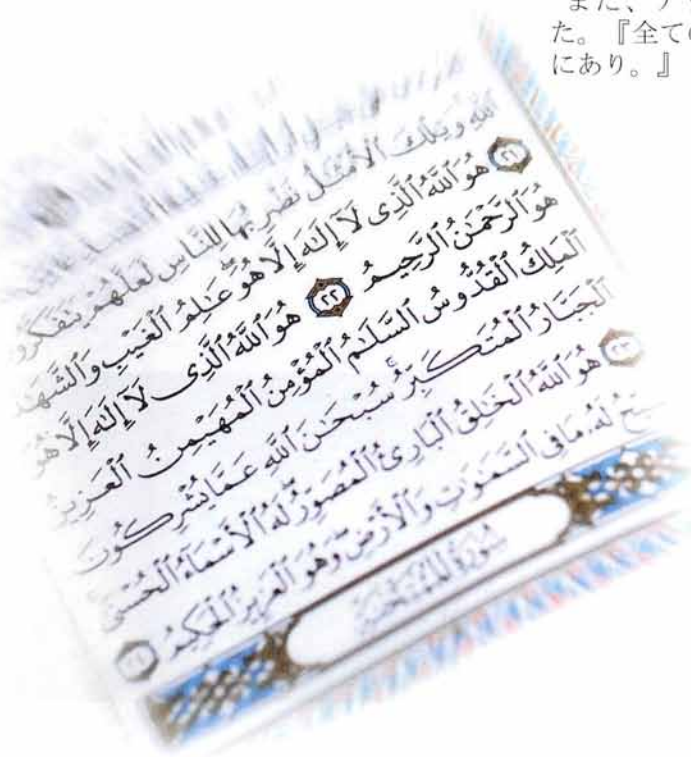 また、ア
た。『全ての
にあり。』
ٱللَّهِ وَتِلْكَ ٱلْأَمْثَٰلُ نَضْرِبُهَا لِلنَّاسِ لَعَلَّهُمْ يَتَفَكَّرُو
٢١ هُوَ ٱللَّهُ ٱلَّذِى لَآ إِلَٰهَ إِلَّا هُوَ عَٰلِمُ ٱلْغَيْبِ وَٱلشَّهَٰ
هُوَ ٱلرَّحْمَٰنُ ٱلرَّحِيمُ ٢٢ هُوَ ٱللَّهُ ٱلَّذِى لَآ إِلَٰهَ إِلَّا هُوَ
ٱلْمَلِكُ ٱلْقُدُّوسُ ٱلسَّلَٰمُ ٱلْمُؤْمِنُ ٱلْمُهَيْمِنُ ٱلْعَزِيزُ
ٱلْجَبَّارُ ٱلْمُتَكَبِّرُ سُبْحَٰنَ ٱللَّهِ عَمَّا يُشْرِكُونَ
٢٣ هُوَ ٱللَّهُ ٱلْخَٰلِقُ ٱلْبَارِئُ ٱلْمُصَوِّرُ لَهُ ٱلْأَسْمَآءُ ٱلْحُسْنَىٰ
بِّحُ لَهُۥ مَا فِى ٱلسَّمَٰوَٰتِ وَٱلْأَرْضِ وَهُوَ ٱلْعَزِيزُ ٱلْحَكِيمُ ٢٤
سُورَةُ ٱلْمُمْتَحَنَةِ